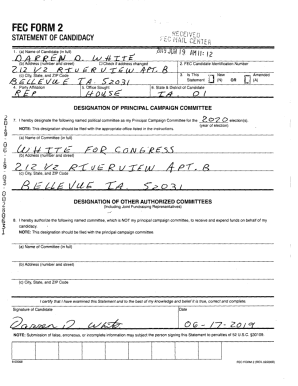 FEC FORM 2
STATEMENT OF CANDIDACY
RECEIVED
FEC MAIL CENTER
2019 JUN 19 AM 11:12
1. (a) Name of Candidate (in full)
DARREN D. WHITE
(b) Address (number and street)
Check if address changed
2. FEC Candidate Identification Number
212 1/2 RIVERVIEW APT. B
(c) City, State, and ZIP Code
3. Is This Statement
New (N) OR
Amended (A)
BELLEVUE IA. 52031
4. Party Affiliation
5. Office Sought
6. State & District of Candidate
REP
HOUSE
IA. 01
DESIGNATION OF PRINCIPAL CAMPAIGN COMMITTEE
7. I hereby designate the following named political committee as my Principal Campaign Committee for the 2020 election(s).
(year of election)
NOTE: This designation should be filed with the appropriate office listed in the instructions.
(a) Name of Committee (in full)
WHITE FOR CONGRESS
(b) Address (number and street)
212 1/2 RIVERVIEW APT. B
(c) City, State, and ZIP Code
BELLEVUE IA. 52031
DESIGNATION OF OTHER AUTHORIZED COMMITTEES
(Including Joint Fundraising Representatives)
8. I hereby authorize the following named committee, which is NOT my principal campaign committee, to receive and expend funds on behalf of my
candidacy.
NOTE: This designation should be filed with the principal campaign committee
(a) Name of Committee (in full)
(b) Address (number and street)
(c) City, State, and ZIP Code
I certify that I have examined this Statement and to the best of my knowledge and belief it is true, correct and complete.
Signature of Candidate
Date
Darren D White
06-17-2019
NOTE: Submission of false, erroneous, or incomplete information may subject the person signing this Statement to penalties of
FEC FORM 2